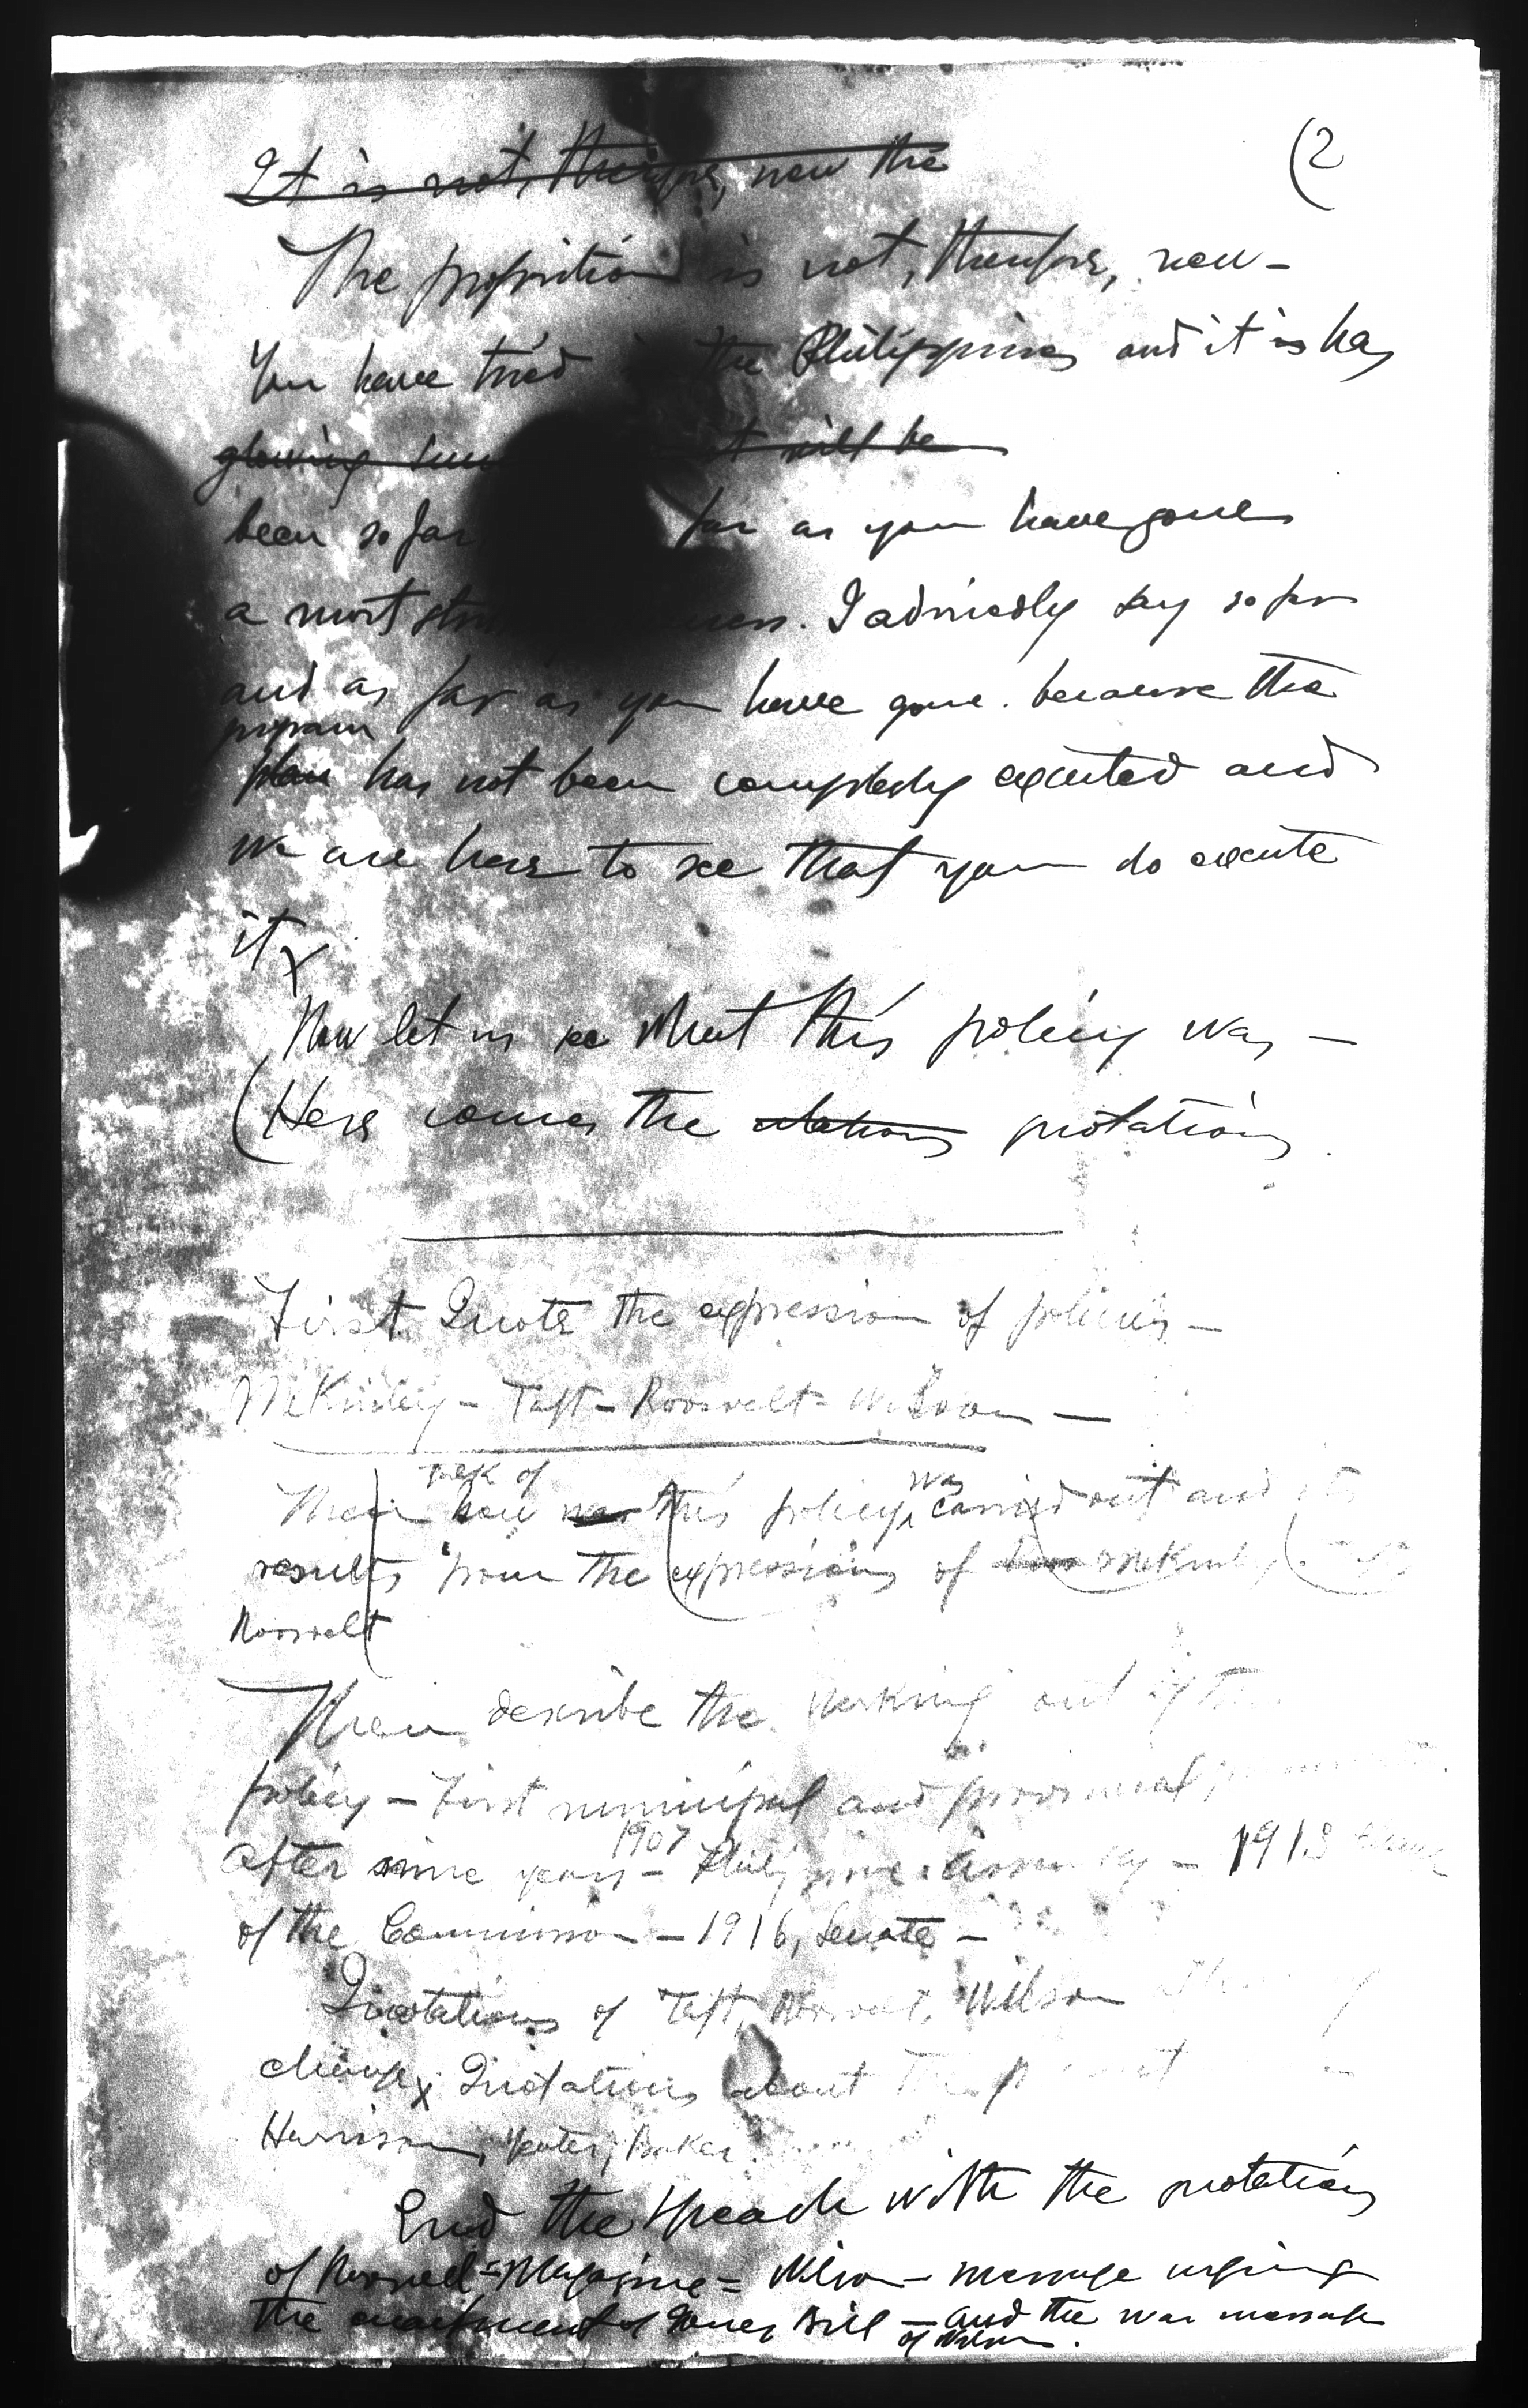 (2
It is not, therefore, new the
The proposition is not, therefore, new -
You have tried the Philippines and it is has
glowing it will be
been so far far as you have gone
a most . I advisedly say so far
and as far as you have gone. because the
program
plan has not been completely executed and
we are here to see that you do execute
it x
Now let us see what this policy was -
(Here comes the quotations.
First Quote the expression of policies -
McKinley - Taft - Roosevelt - Wilson -
of was
Then how was this policy, carried out and its
results from the expressions of McKinley
Roosevelt
Then describe the working out of the
policy - First municipal and provincial
1907
after some years - Philippine Assembly - 1913
of the Commission - 1916, Senate -
Quotations of Taft, Roosevelt, Wilson
change x Quotations about
Harrison, Yeater, Baker
End the speech with the quotations
of Roosevelt - Magazine = Wilson - message urging
the enactment of Jones Bill - and the war message
of Wilson.